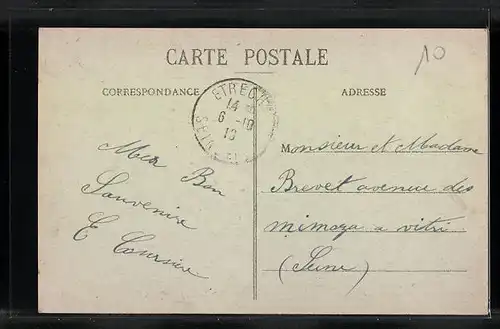 10
CARTE POSTALE
CORRESPONDANCE
ADRESSE
ETRECHY
14
6 -10
16
Bon
Souvenire
E Coursier
Monsieur et Madame
Brevet avenue des
mimoza a vitri
(Seine)